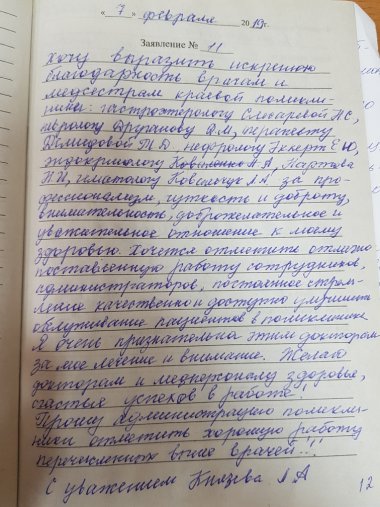 « 7 » февраля 2019г.
Заявление № 11
Хочу выразить искреннюю
благодарность врачам и
медсестрам краевой поликли-
ники: гастроэнтерологу Слюсаревой Н С,
неврологу Д М, терапевту
Демидовой Т Д, нефрологу Эккерт Е Ю,
эндокринологу Коваленко А А,
Н.И, гематологу Ковальчук Л А, за про-
фессионализм, чуткость и доброту,
внимательность, доброжелательное и
уважительное отношение к моему
здоровью. Хочется отметить отлично
поставленную работу сотрудников,
администраторов, постоянное стрем-
ление качественно и доступно улучшить
обслуживание пациентов в поликлинике
Я очень признательна этим докторам
за мое лечение и внимание. Желаю
докторам и медперсоналу здоровья,
счастья успехов в работе.
Прошу Администрацию поликли-
ники отметить хорошую работу
перечисленных выше врачей!!!
С уважением Князева Л А
12